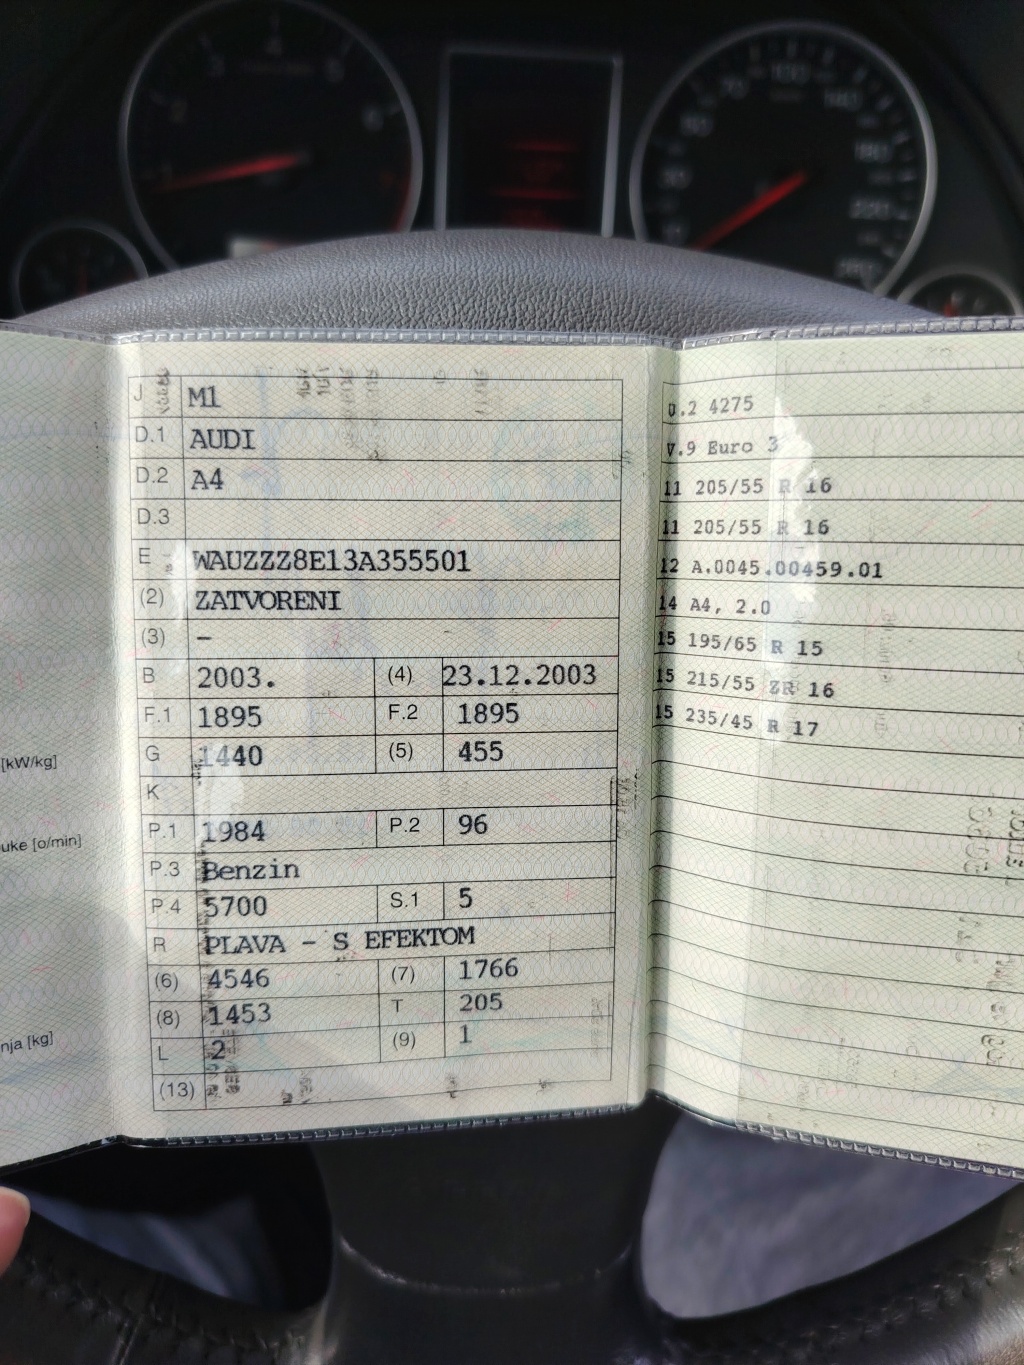 [kW/kg]
uke [o/min]
nja [kg]
J M1
D.1 AUDI
D.2 A4
D.3
E WAUZZZ8E13A355501
(2) ZATVORENI
(3) –
B 2003. (4) 23.12.2003
F.1 1895 F.2 1895
G 1440 (5) 455
K
P.1 1984 P.2 96
P.3 Benzin
P.4 5700 S.1 5
R PLAVA - S EFEKTOM
(6) 4546 (7) 1766
(8) 1453 T 205
L 2 (9) 1
(13)
U.2 4275
V.9 Euro 3
11 205/55 R 16
11 205/55 R 16
12 A.0045.00459.01
14 A4, 2.0
15 195/65 R 15
15 215/55 ZR 16
15 235/45 R 17